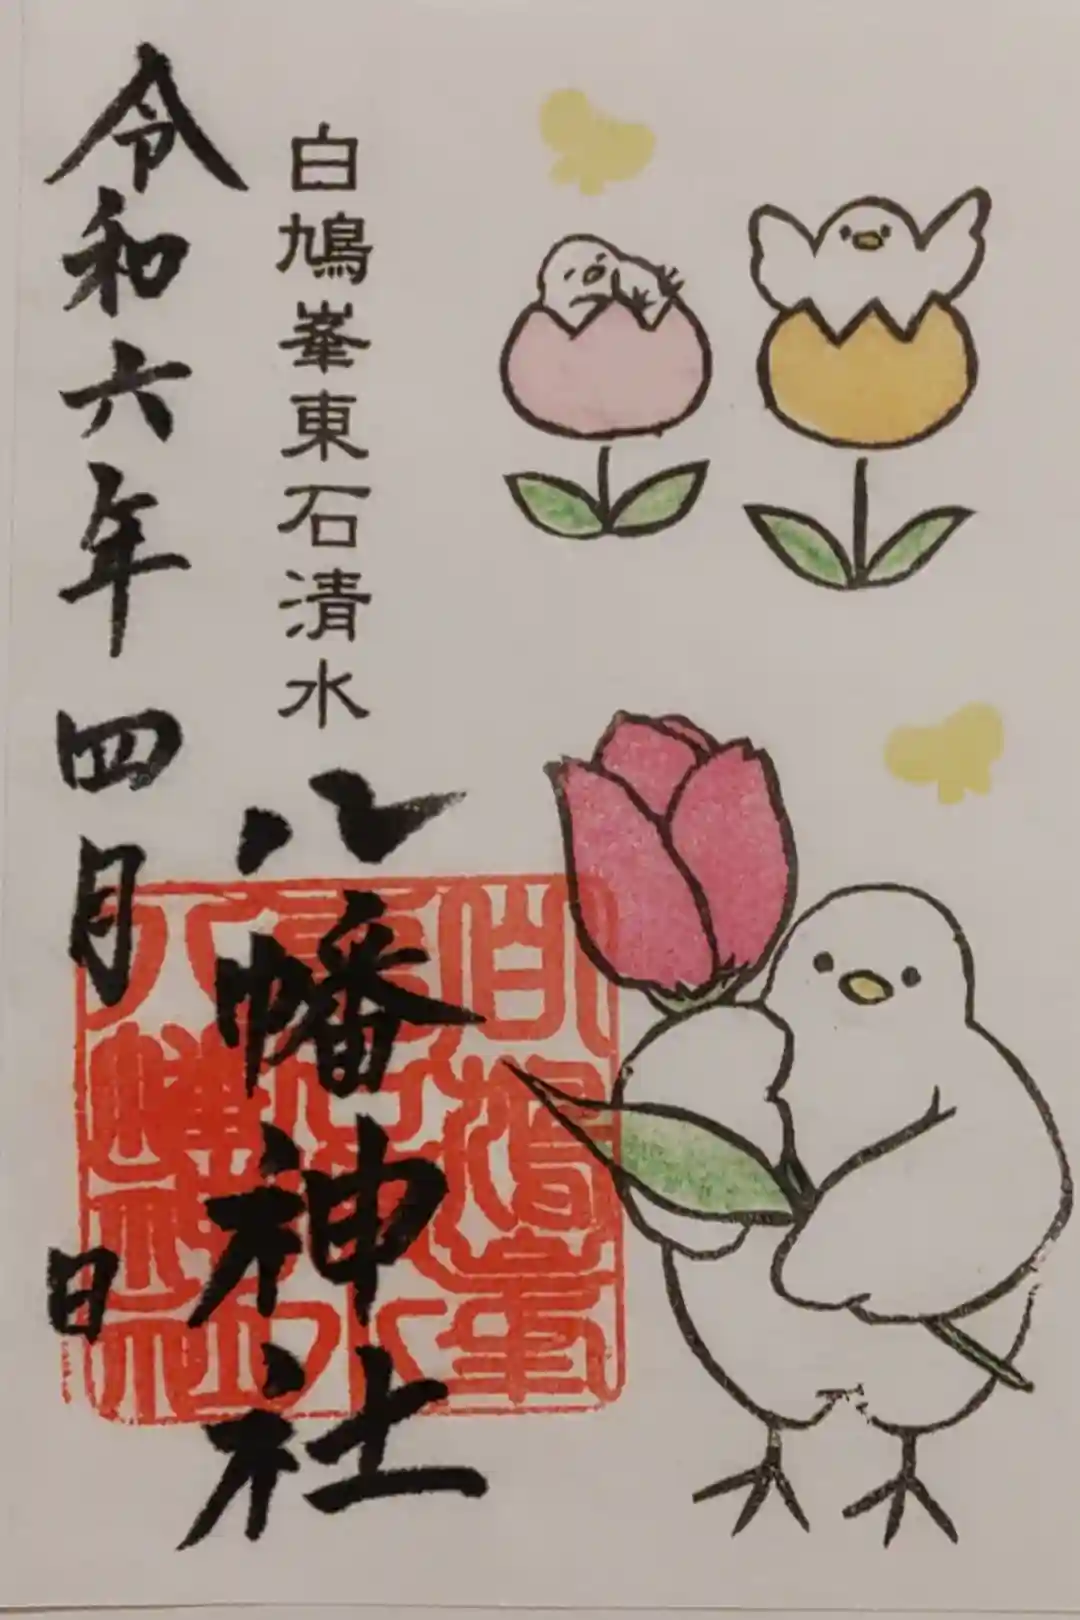 白鳩峯東石清水
八幡神社
令和六年四月 日